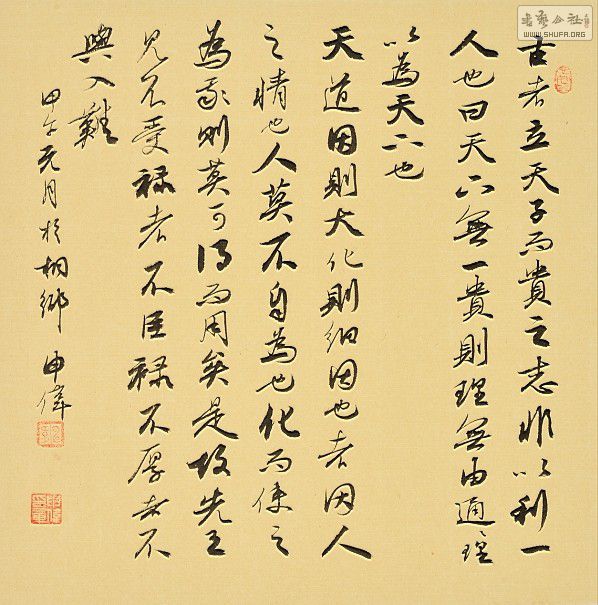 古者立天子而貴之志非以利一
人也曰天下無一貴則理無由通理
以為天下也
天道因則大化則細因也者因人
之情也人莫不自為也化而使之
為我則莫可得而用矣是故先王
見不受祿者不臣祿不厚者不
與入難
甲午元月於桐鄉 申偉
书艺公社
WWW.SHUFA.ORG